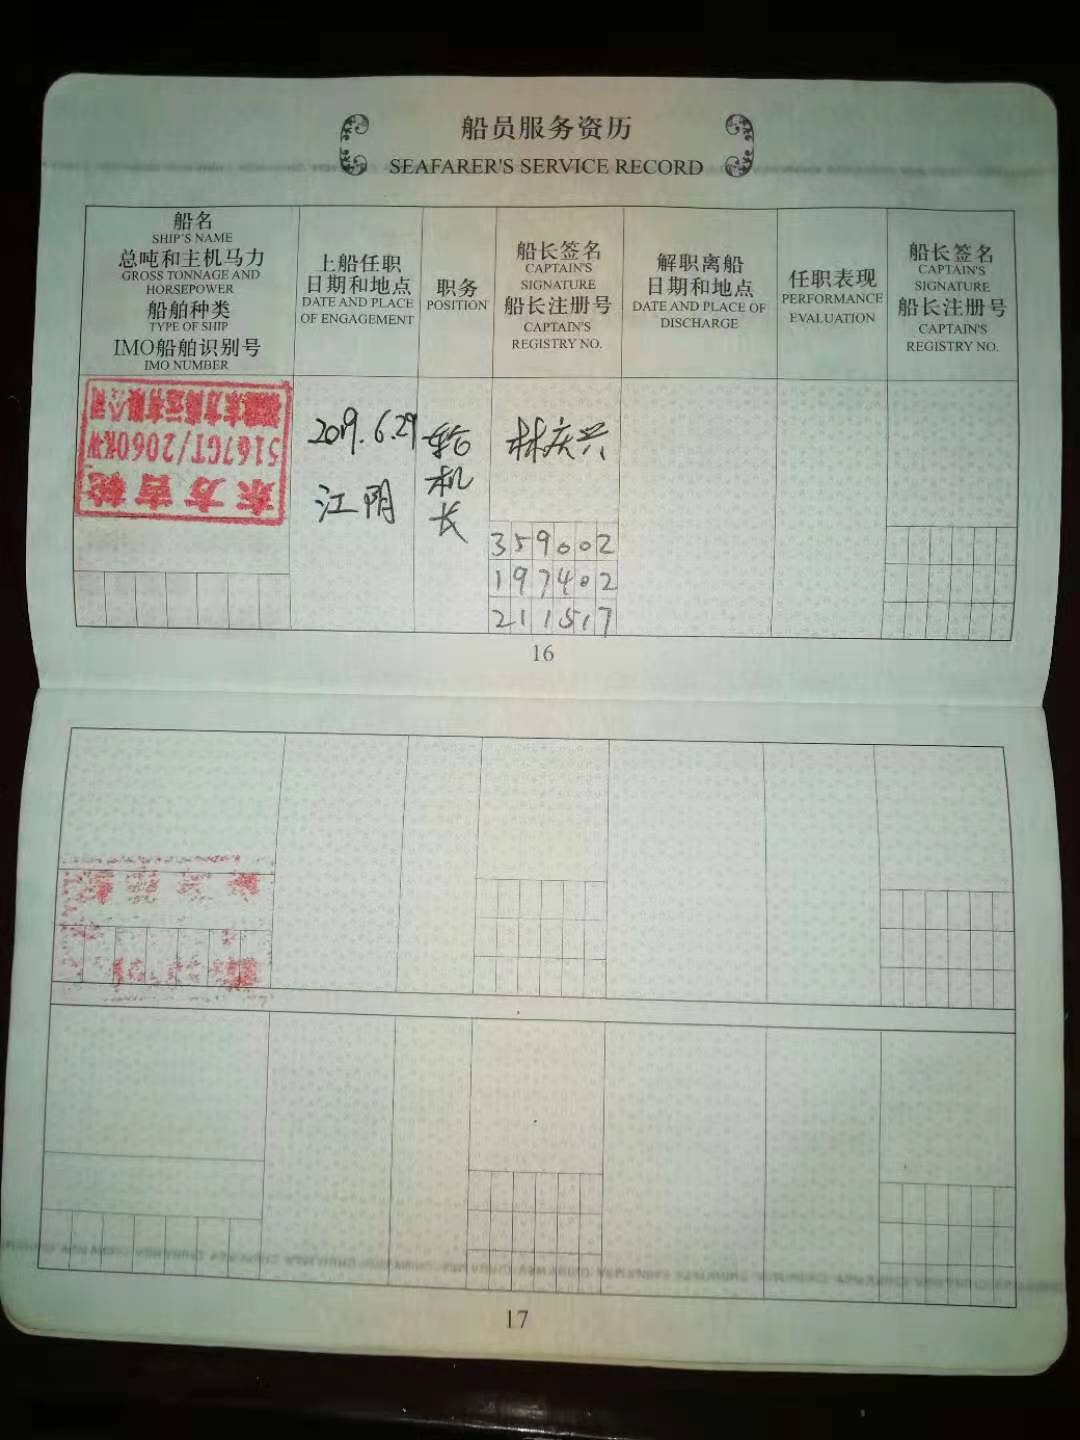 船员服务资历
SEAFARER'S SERVICE RECORD
船名
SHIP'S NAME
总吨和主机马力
GROSS TONNAGE AND
HORSEPOWER
船舶种类
TYPE OF SHIP
IMO船舶识别号
IMO NUMBER
上船任职
日期和地点
DATE AND PLACE
OF ENGAGEMENT
职务
POSITION
船长签名
CAPTAIN'S
SIGNATURE
船长注册号
CAPTAIN'S
REGISTRY NO.
解职离船
日期和地点
DATE AND PLACE OF
DISCHARGE
任职表现
PERFORMANCE
EVALUATION
船长签名
CAPTAIN'S
SIGNATURE
船长注册号
CAPTAIN'S
REGISTRY NO.
东方吉轮
5167GT/2060KW
东方海运有限公司
2019.6.29
江阴
轮机长
林庆兴
359002
197402
211517
16
17